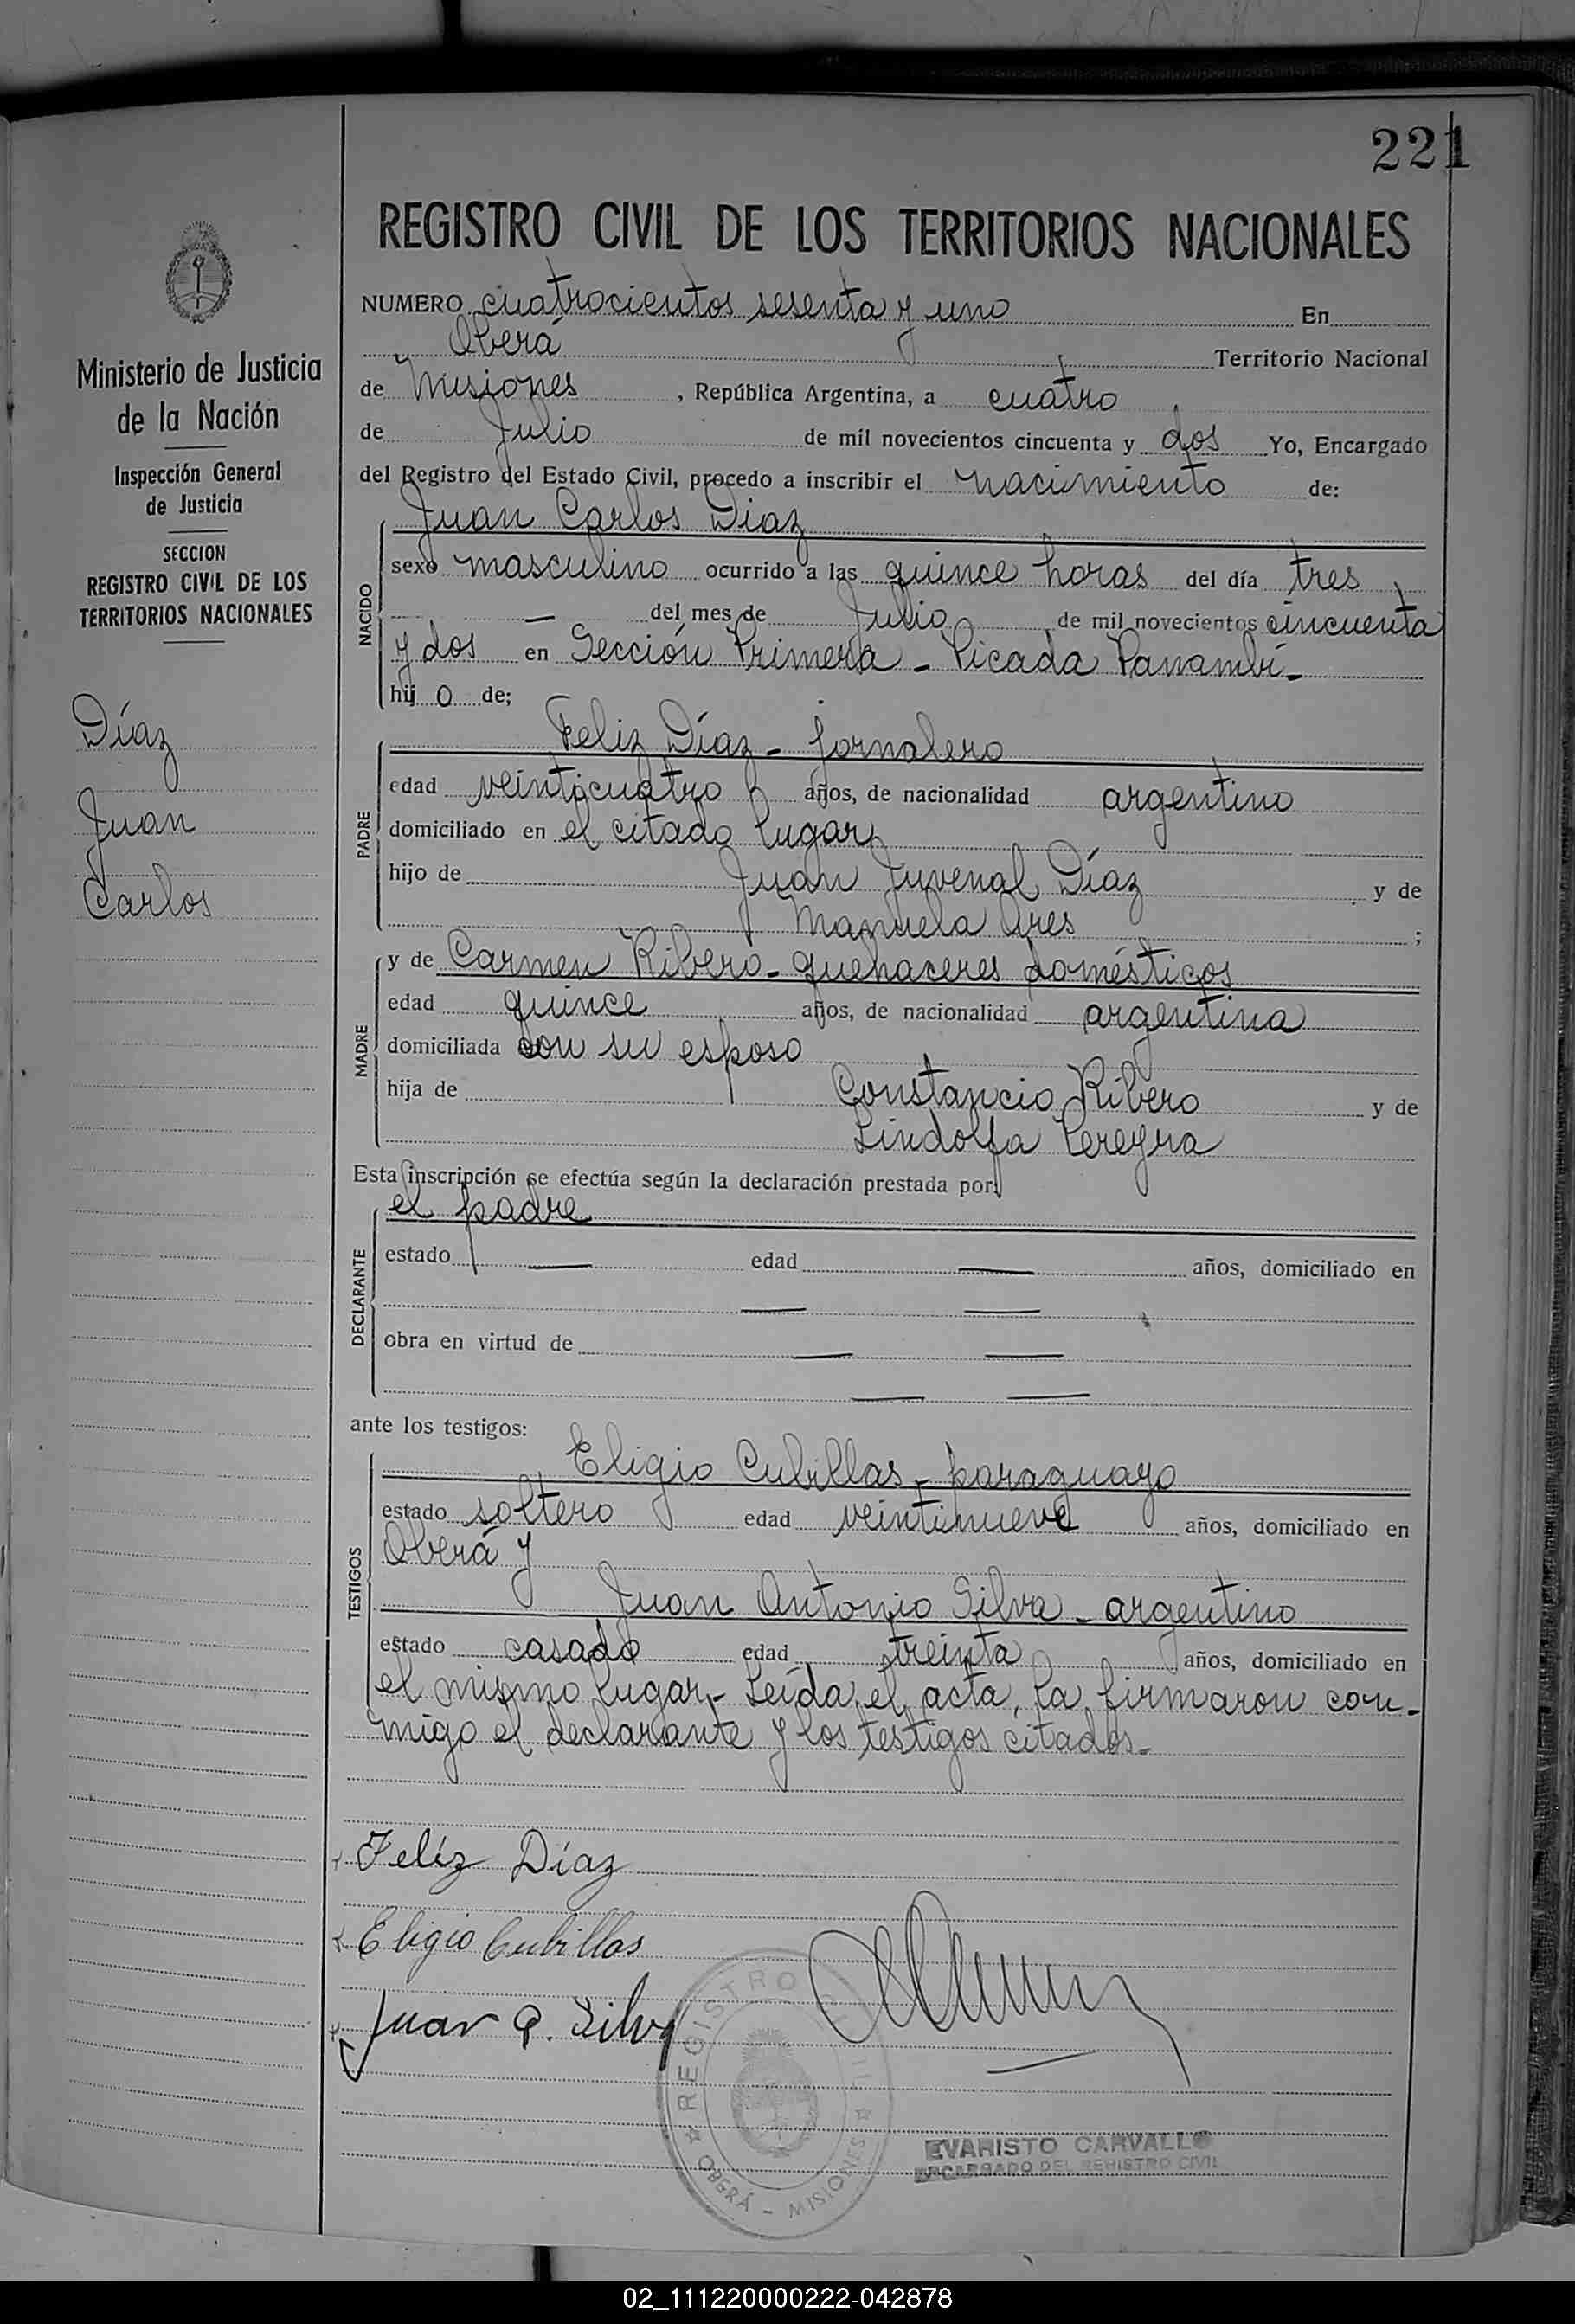 221
REGISTRO CIVIL DE LOS TERRITORIOS NACIONALES
Ministerio de Justicia
de la Nación
Inspección General
de Justicia
SECCION
REGISTRO CIVIL DE LOS
TERRITORIOS NACIONALES
Díaz
Juan
Carlos
NUMERO cuatrocientos sesenta y uno En
Oberá Territorio Nacional
de Misiones , República Argentina, a cuatro
de Julio de mil novecientos cincuenta y dos Yo, Encargado
del Registro del Estado Civil, procedo a inscribir el nacimiento de:
NACIDO
Juan Carlos Diaz
sexo masculino ocurrido a las quince horas del día tres
— del mes de Julio de mil novecientos cincuenta
y dos en Sección Primera - Picada Panambí -
hij o de;
PADRE
Feliz Díaz - jornalero
edad veinticuatro años, de nacionalidad argentino
domiciliado en el citado lugar
hijo de Juan Juvenal Díaz y de
Manuela Ares ;
MADRE
y de Carmen Ribero - quehaceres domésticos
edad quince años, de nacionalidad argentina
domiciliada con su esposo
hija de Constancio Ribero y de
Lindolfa Pereyra
Esta inscripción se efectúa según la declaración prestada por:
DECLARANTE
el padre
estado — edad — años, domiciliado en
— —
obra en virtud de — —
— —
ante los testigos:
TESTIGOS
Eligio Cubillas - paraguayo
estado soltero edad veintinueve años, domiciliado en
Oberá y
Juan Antonio Silva - argentino
estado casado edad treinta años, domiciliado en
el mismo lugar.- Leída el acta, la firmaron con-
migo el declarante y los testigos citados.-
Felíz Díaz
Eligio Cubillas
Juan A. Silva
REGISTRO CIVIL
OBERÁ - MISIONES
EVARISTO CARVALLO
ENCARGADO DEL REGISTRO CIVIL
02_111220000222-042878